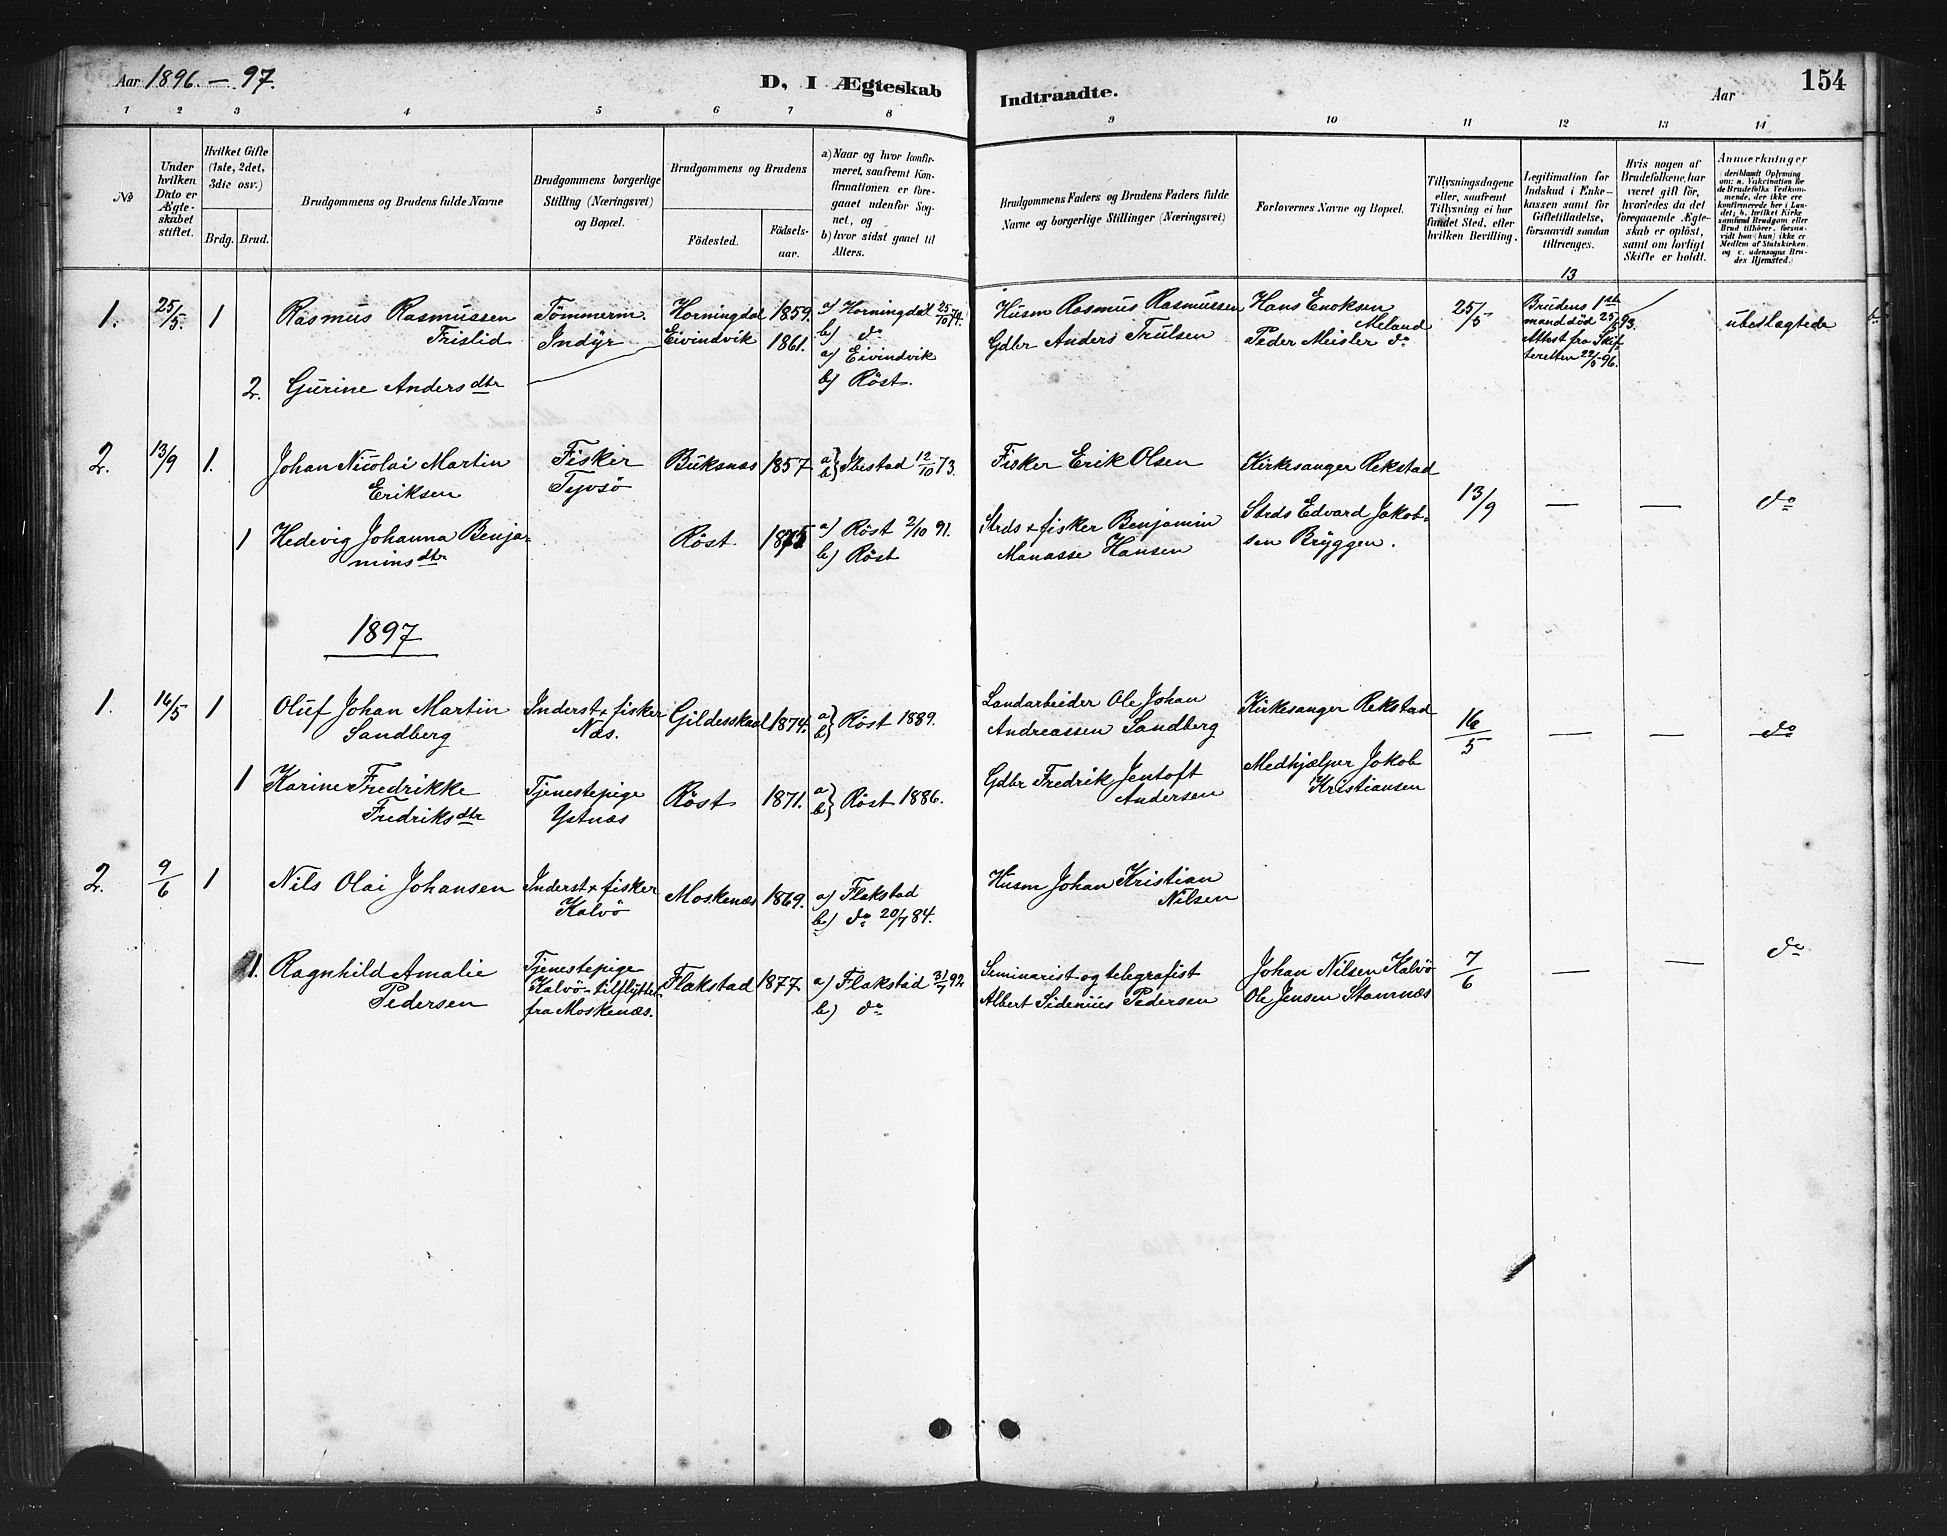 Aar 1896.–97.
D, I Ægteskab
Indtraadte.
Aar
154
1 2 3 4 5 6 7 8
9 10 11 12 13 14
№
Under hvilken Dato er Ægteskabet stiftet.
Hvilket Gifte (1ste, 2det, 3die osv.)
Brdg. Brud.
Brudgommens og Brudens fulde Navne
Brudgommens borgerlige Stilling (Næringsvei) og Bopæl.
Brudgommens og Brudens
Födested.
Födsels-aar.
a) Naar og hvor konfirmeret, saafremt Konfirmationen er foregaaet udenfor Sognet, og
b) hvor sidst gaaet til Alters.
Brudgommens Faders og Brudens Faders fulde Navne og borgerlige Stillinger (Næringsvei)
Forlovernes Navne og Bopæl.
Tillysningsdagene eller, saafremt Tillysning ei har fundet Sted, efter hvilken Bevilling.
Legitimation for Indskud i Enkekassen samt for Giftetilladelse, forsaavidt saadan tiltrænges.
Hvis nogen af Brudefolkene har været gift för, hvorledes da det foregaaende Ægteskab er oplöst, samt om lovligt Skifte er holdt.
Anmærkninger deriblandt Oplysning om: a. Vakcination for de Brudefolks Vedkommende, der ikke ere konfirmerede her i Landet; b. hvilket Kirkesamfund Brudgom eller Brud tilhörer, forsaavidt han (hun) ikke er Medlem af Statskirken, og c. udensogns Brudes Hjemsted.)
13
1. 25/5. 1 Rasmus Rasmussen Tömmerm. Horningdal 1859. a) Horningdal 25/10 74. Husm Rasmus Rasmussen Hans Enoksen 25/5 Brudens 1ste ubeslægtede
Frislid Indÿr Eivindvik 1861. b) do Gdbr Anders Trulsen Meland mand död 25/5 93.
a) Eivindvik Peder Meisler do Attest fra Skif-
2. Gurine Andersdtr b) Röst. teretten 22/5 96.
2. 13/9 1. Johan Nicolai Martin Fisker Buksnæs 1857 a) b) Ibestad 12/10 73. Fisker Erik Olsen Kirkesanger Rekstad
Eriksen Tyvsö 13/9 — — do
1 Hedevig Johanna Benja- Röst 1875 a) Röst 2/10 91. Strds & fisker Benjamin Strds Edvard Jakob-
minsdtr b) Röst Manasse Hansen sen Bryggen.
1897
1. 16/5 1 Oluf Johan Martin Inderst & fisker Gildesskaal 1874. a) b) Röst 1889. Landarbeider Ole Johan Kirkesanger Rekstad
Sandberg Næs. Andreassen Sandberg 16/5 — — do
1 Karine Fredrikke Tjenestepige Röst 1871. a) b) Röst 1886. Gdbr Fredrik Jentoft Medhjælper Jakob
Fredriksdtr Ystnæs Andersen Kristiansen
2. 9/6 1 Nils Olai Johansen Inderst & fisker Moskenæs 1869. a) Flakstad Husm Johan Kristian
Kalvö b) do 20/7 84. Nilsen
1. Ragnhild Amalie Tjenestepige Flakstad 1877 a) Flakstad 31/7 92 Seminarist og telegrafist Johan Nilsen Kalvö 7/6 — — do
Pedersen Kalvö – tilflyttet b) do Albert Sidenius Pedersen Ole Jensen Stamnæs
fra Moskenæs.